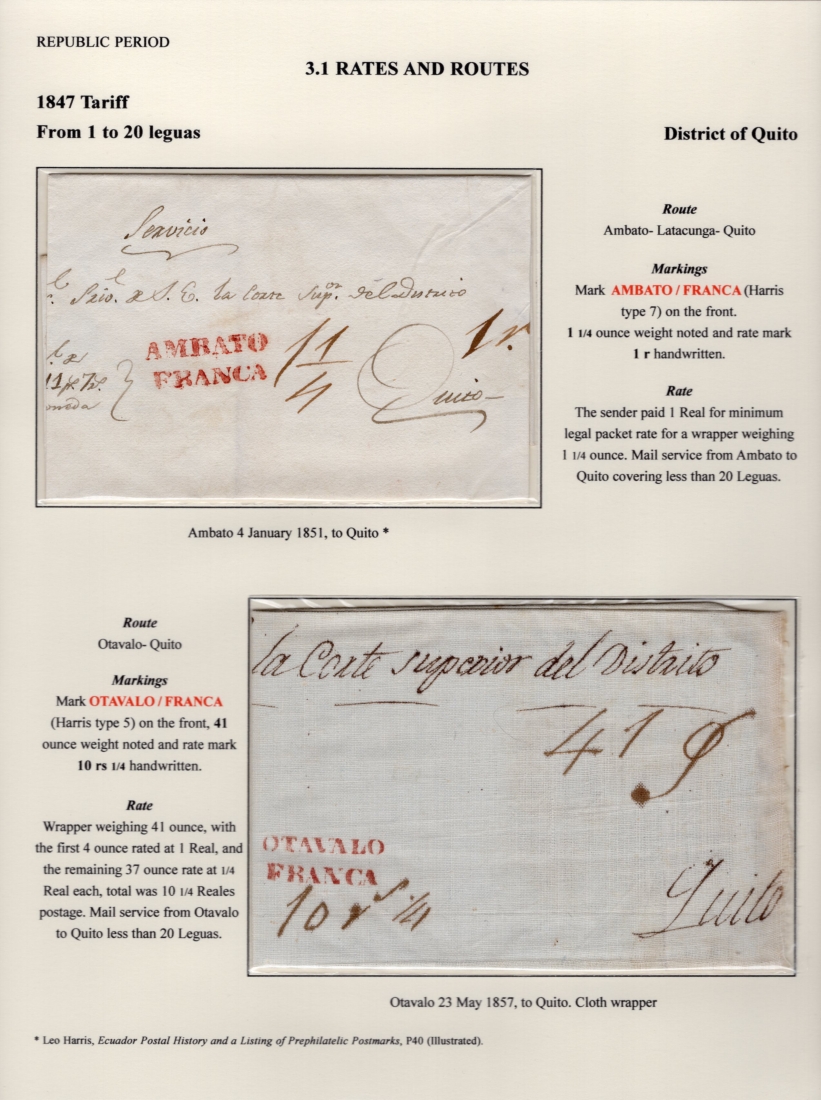 REPUBLIC PERIOD
3.1 RATES AND ROUTES
1847 Tariff
From 1 to 20 leguas
District of Quito
Servicio
Srio. a S. E. la Corte Supor. del Distrito
AMBATO
FRANCA
1 1/4
1 r.
Quito
Route
Ambato- Latacunga- Quito
Markings
Mark AMBATO / FRANCA (Harris
type 7) on the front.
1 1/4 ounce weight noted and rate mark
1 r handwritten.
Rate
The sender paid 1 Real for minimum
legal packet rate for a wrapper weighing
1 1/4 ounce. Mail service from Ambato to
Quito covering less than 20 Leguas.
Ambato 4 January 1851, to Quito *
Route
Otavalo- Quito
Markings
Mark OTAVALO / FRANCA
(Harris type 5) on the front, 41
ounce weight noted and rate mark
10 rs 1/4 handwritten.
Rate
Wrapper weighing 41 ounce, with
the first 4 ounce rated at 1 Real, and
the remaining 37 ounce rate at 1/4
Real each, total was 10 1/4 Reales
postage. Mail service from Otavalo
to Quito less than 20 Leguas.
la Corte superior del Distrito
41
OTAVALO
FRANCA
10 rs 1/4
Quito
Otavalo 23 May 1857, to Quito. Cloth wrapper
* Leo Harris, Ecuador Postal History and a Listing of Prephilatelic Postmarks, P40 (Illustrated).